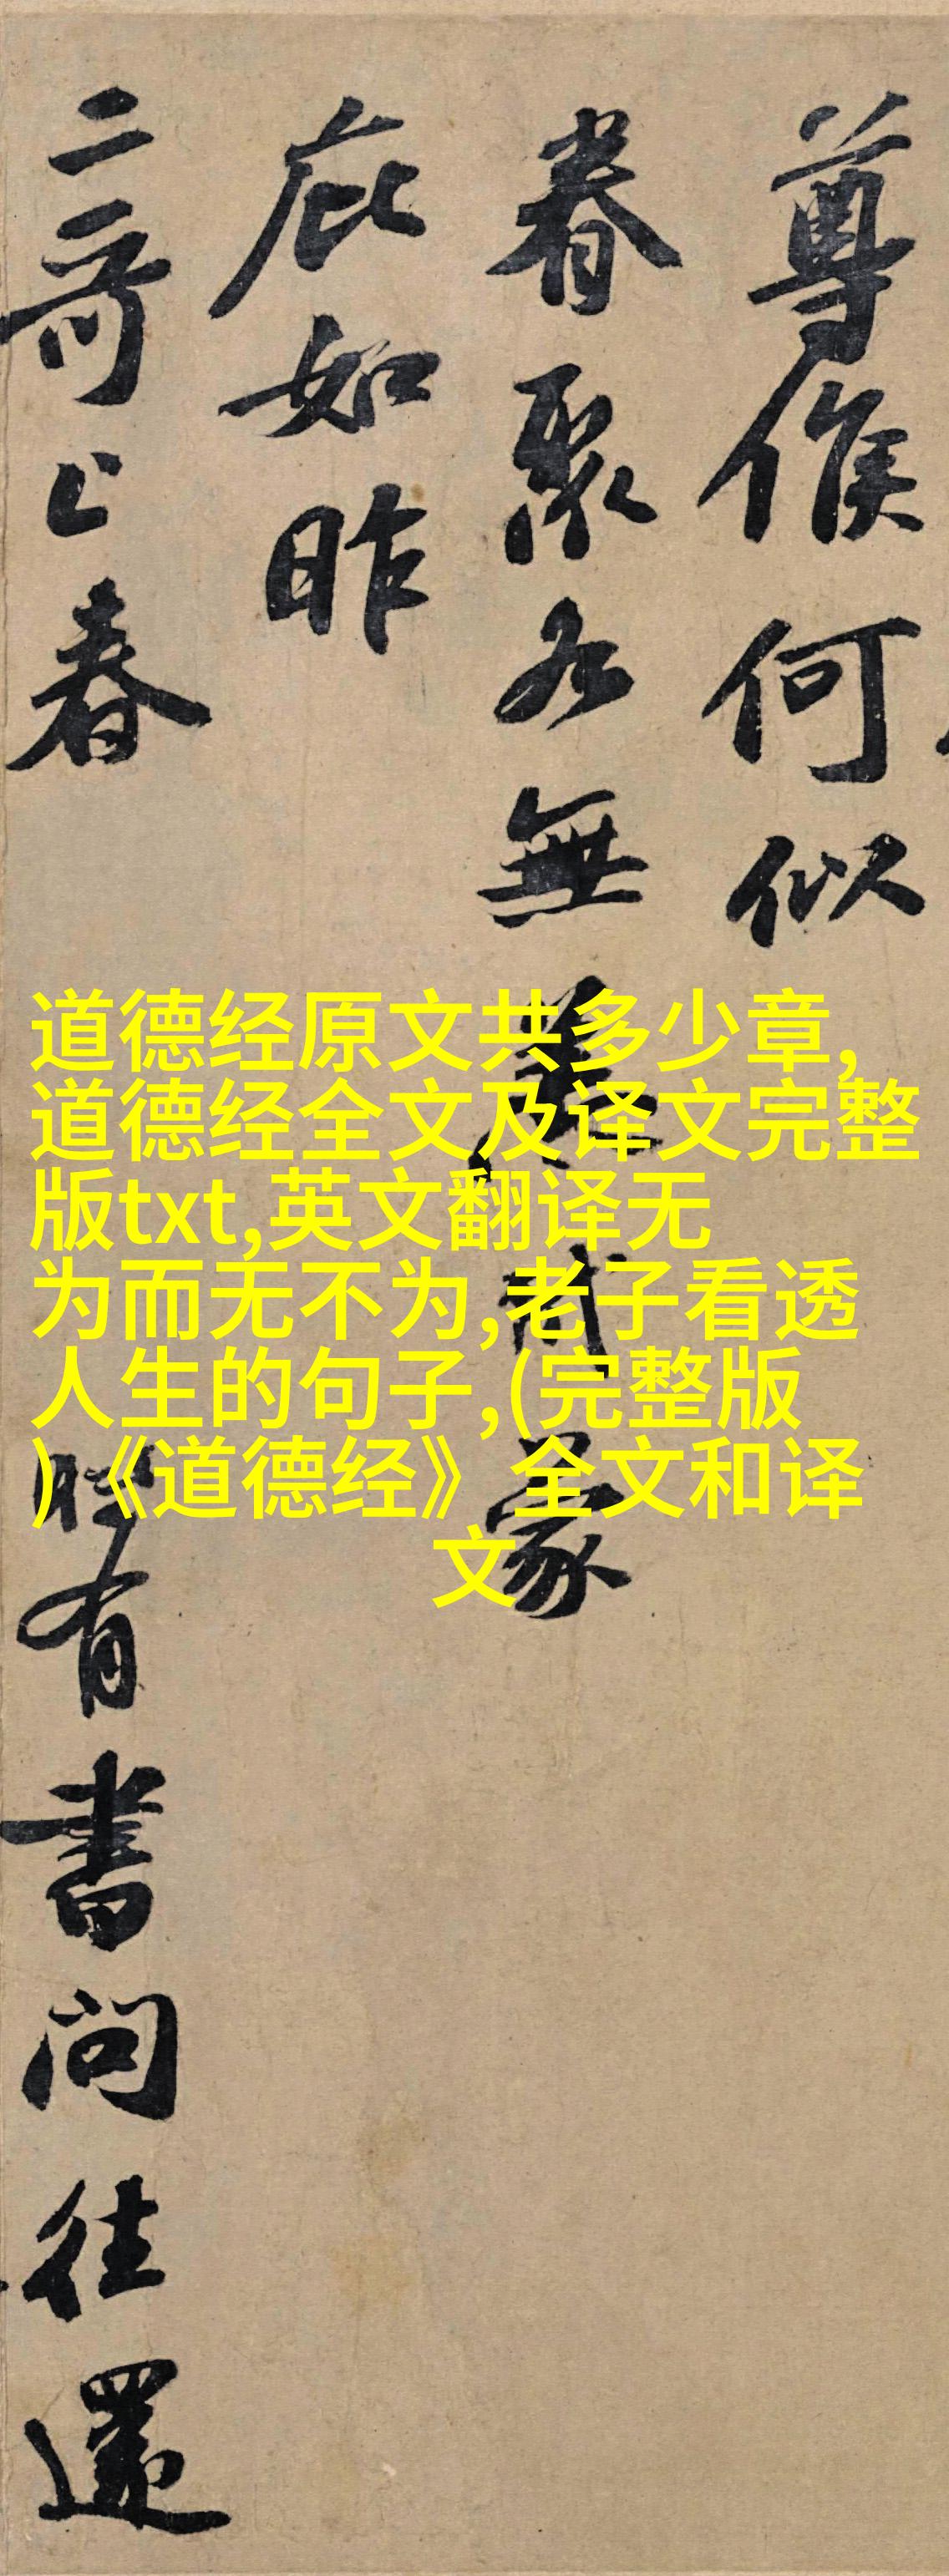 尊候何似
眷聚各無恙耶蒙
庇如昨
二哥上春
時有書問往還
道德经原文共多少章,
道德经全文及译文完整
版txt,英文翻译无
为而无不为,老子看透
人生的句子,(完整版
)《道德经》全文和译
文